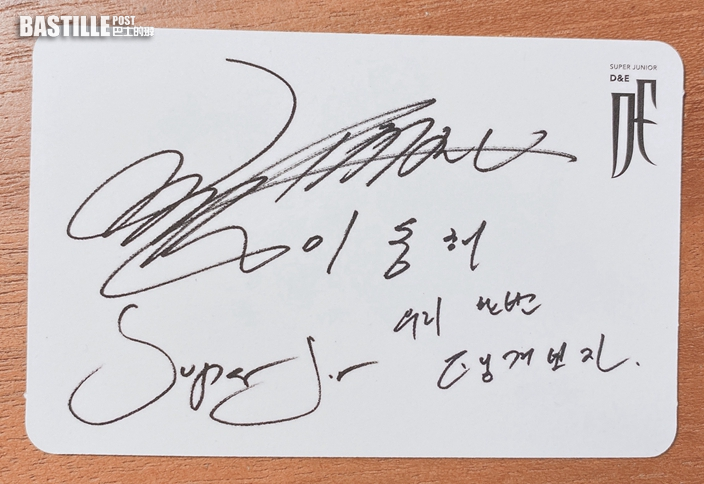 BASTILLE POST
巴士的報
SUPER JUNIOR
D&E
DE
이동해
Super Jr
우리 한번